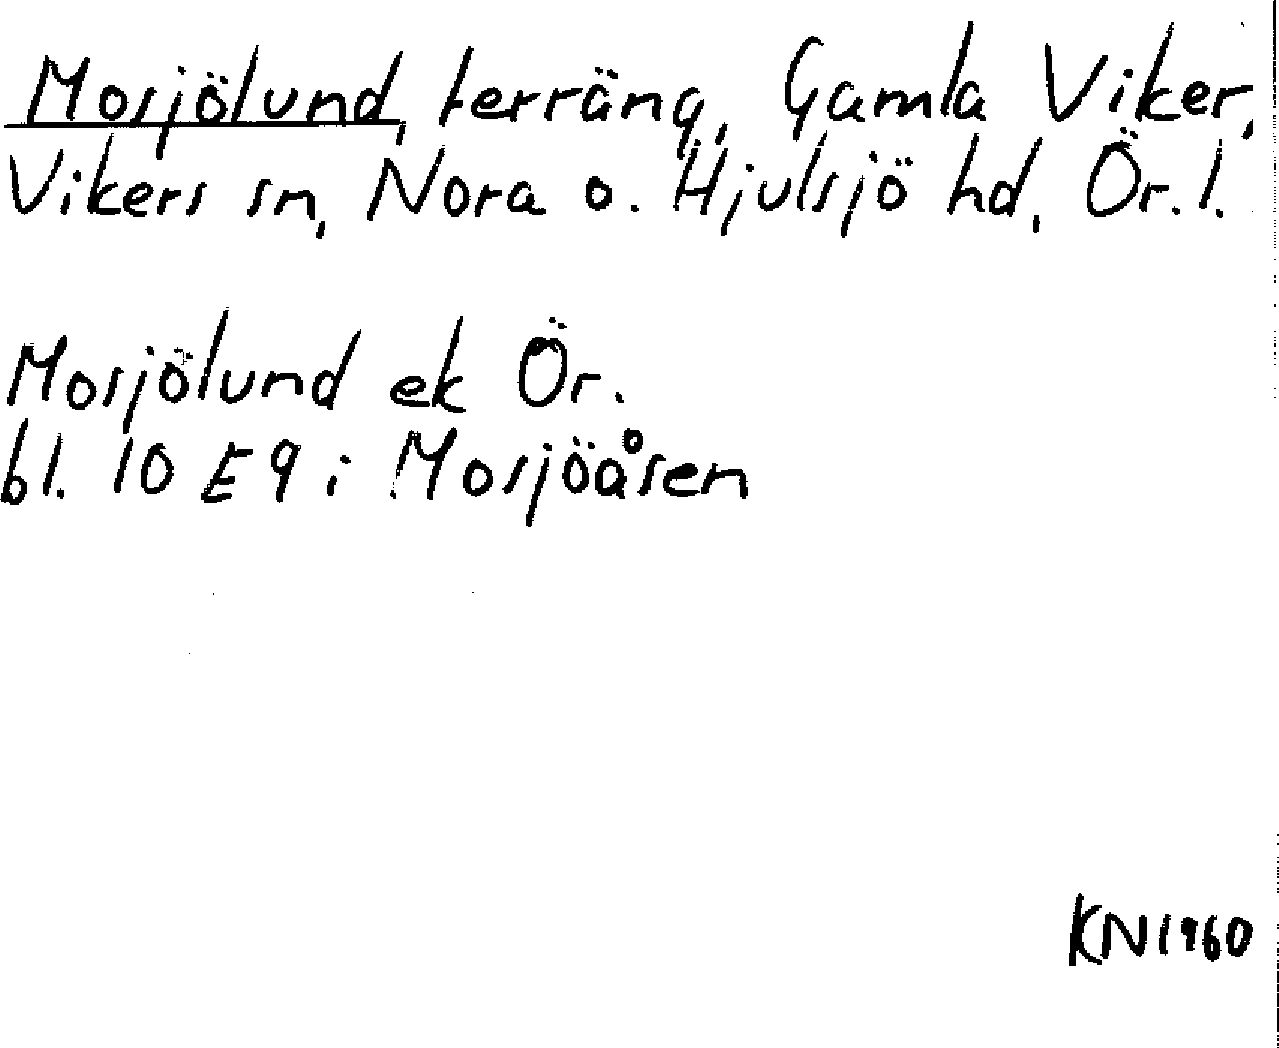 Mosjölund, terräng, Gamla Viker,
Vikers sn, Nora o. Hjulsjö hd, Ör. l.
Mosjölund ek Ör.
bl. 10 E9 i Mosjöåsen
KN1960